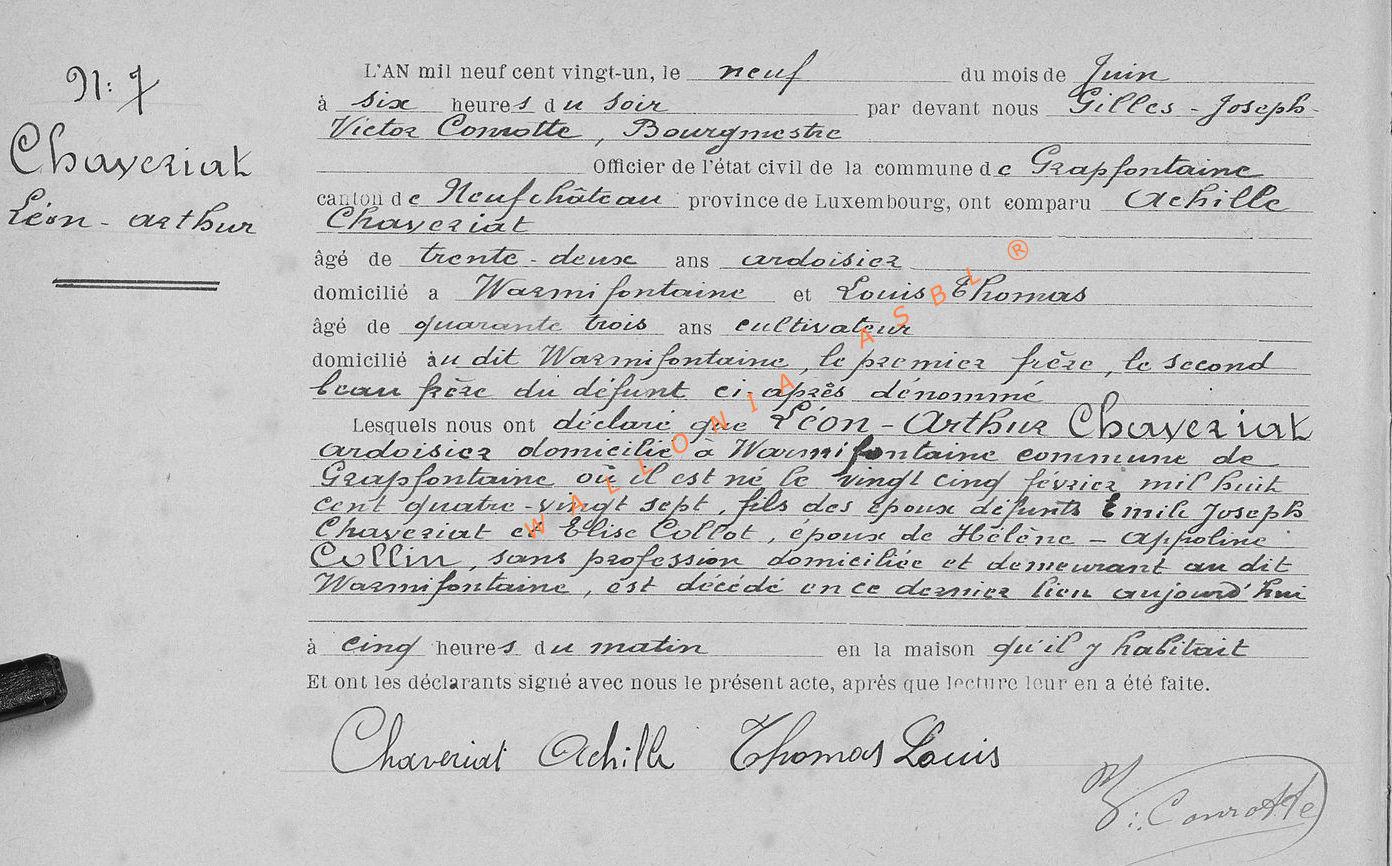 N: 7
Chaveriat
Léon - Arthur
L'AN mil neuf cent vingt-un, le neuf du mois de Juin
à six heures du soir par devant nous Gilles - Joseph -
Victor Conrotte, Bourgmestre
Officier de l'état civil de la commune de Grapfontaine
canton de Neufchâteau province de Luxembourg, ont comparu Achille
Chaveriat
âgé de trente-deux ans ardoisier
domicilié a Warmifontaine et Louis Thomas
âgé de quarante trois ans cultivateur
domicilié au dit Warmifontaine, le premier frère, le second
beau frère du défunt ci-après dénommé
Lesquels nous ont déclaré que Léon - Arthur Chaveriat
ardoisier domicilié à Warmifontaine commune de
Grapfontaine où il est né le vingt cinq février mil huit
cent quatre-vingt sept, fils des époux défunts Emile Joseph
Chaveriat et Elise Collot, époux de Hélène - Appoline
Collin, sans profession domiciliée et demeurant au dit
Warmifontaine, est décédé en ce dernier lieu aujourd'hui
à cinq heures du matin en la maison qu'il y habitait
Et ont les déclarants signé avec nous le présent acte, après que lecture leur en a été faite.
Chaveriat Achille Thomas Louis
V: Conrotte
WALLONIA ASBL ®